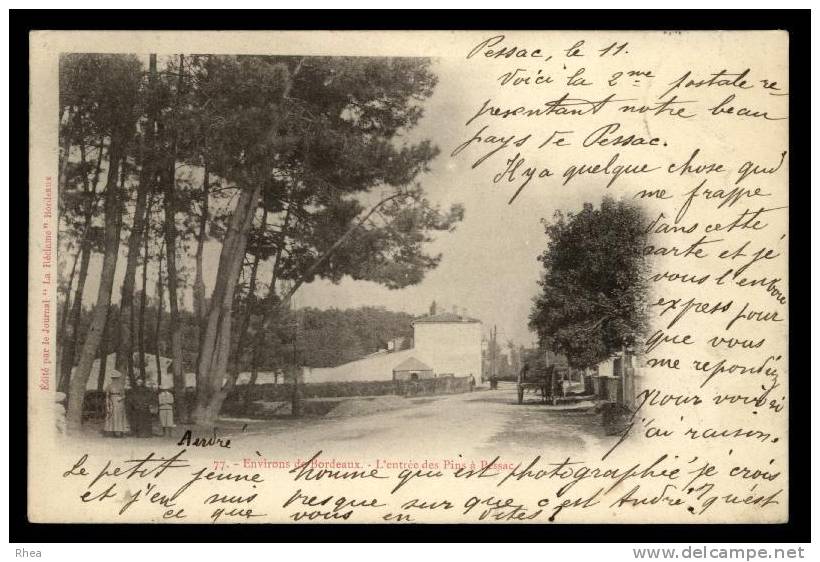 Pessac, le 11.
Voici la 2me postale re
présentant notre beau
pays de Pessac.
Il y a quelque chose qui
me frappe
dans cette
carte et je
vous l'envoie
express pour
que vous
me répondiez
pour voir si
j'ai raison.
Edité par le Journal "La Réclame" Bordeaux
André
77. - Environs de Bordeaux. - L'entrée des Pins à Pessac
Le petit jeune homme qui est photographié je crois
et j'en suis presque sur que c'est André, qu'est
ce que vous en dites?
Rhea
http://www.delcampe.net